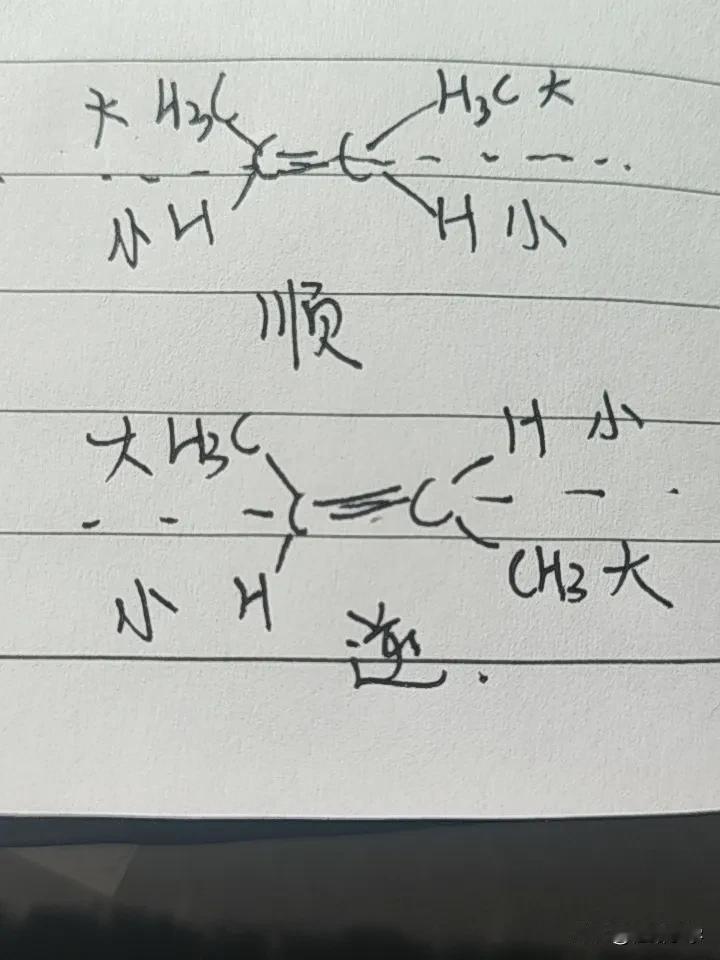 大 H3C H3C 大
C=C
小 H H 小
顺
大 H3C H 小
C=C
小 H CH3 大